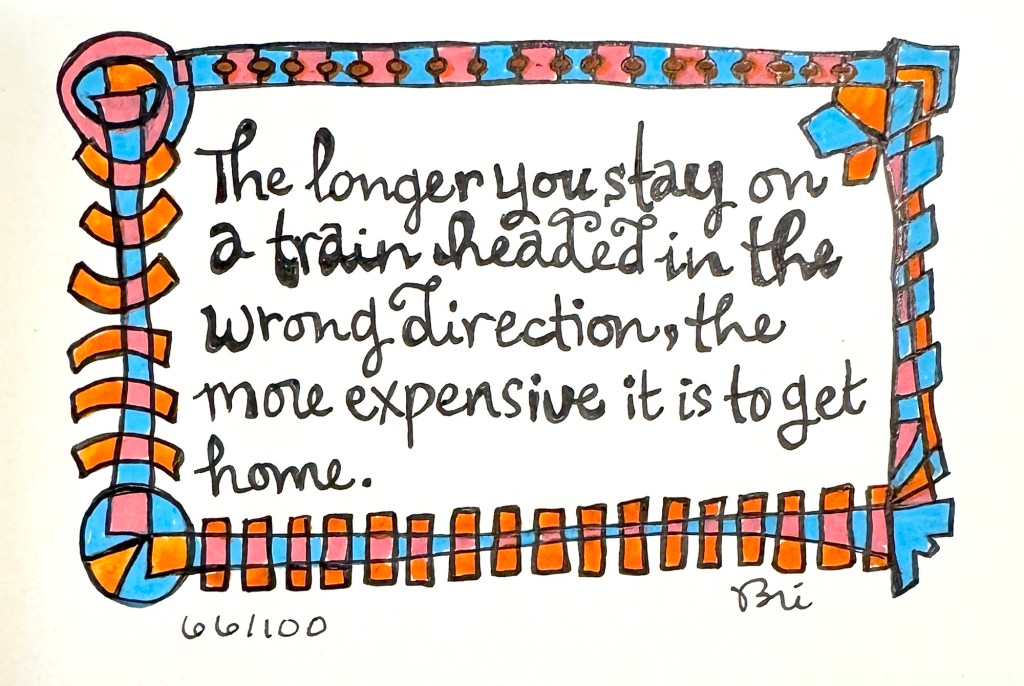 The longer you stay on
a train headed in the
wrong direction, the
more expensive it is to get
home.
Bri
66/100